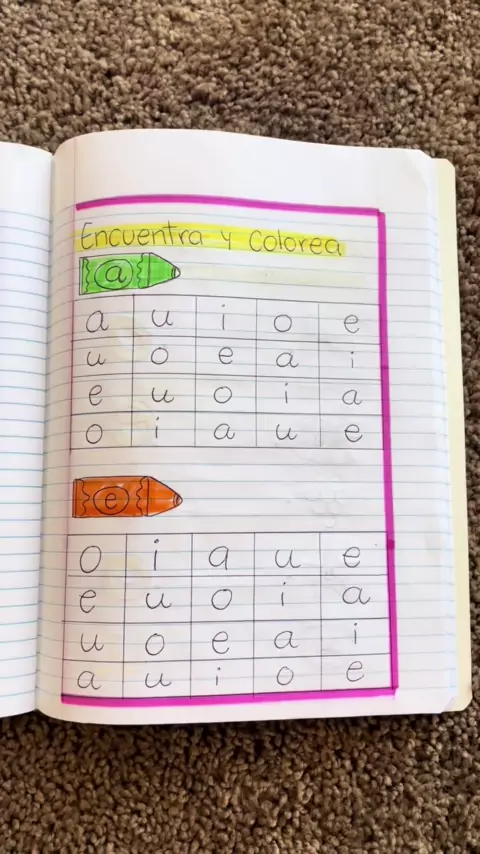 Encuentra y Colorea
a
a u i o e
u o e a i
e u o i a
o i a u e
e
o i a u e
e u o i a
u o e a i
a u i o e